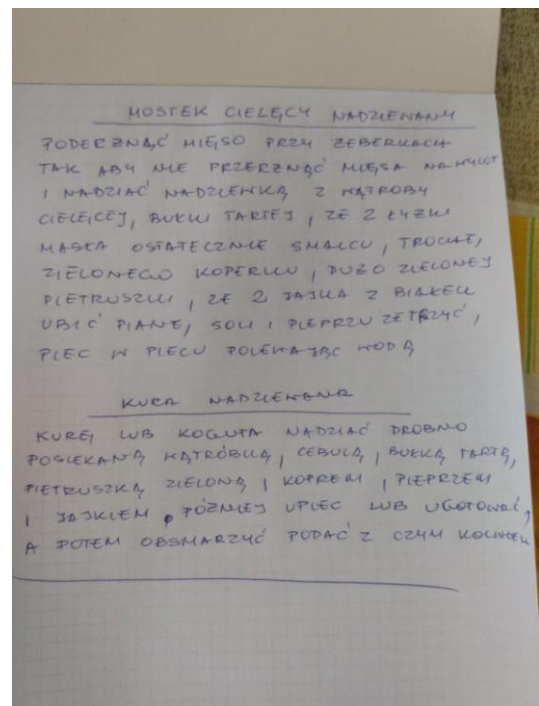 MOSTEK CIELĘCY NADZIEWANY
PODERŻNĄĆ MIĘSO PRZY ŻEBERKACH
TAK ABY NIE PRZERŻNĄĆ MIĘSA NA WYLOT
I NADZIAĆ NADZIEWKĄ Z WĄTROBY
CIELĘCEJ, BUŁKI TARTEJ, ZE 2 ŁYŻKI
MASŁA OSTATECZNIE SMALCU, TROCHĘ,
ZIELONEGO KOPERKU, DUŻO ZIELONEJ
PIETRUSZKI, ZE 2 JAJKA Z BIAŁEK
UBIĆ PIANĘ, SOLI I PIEPRZU ZETRZYĆ,
PIEC W PIECU POLEWAJĄC WODĄ
KURA NADZIEWANA
KURĘ LUB KOGUTA NADZIAĆ DROBNO
POSIEKANĄ WĄTRÓBKĄ, CEBULĄ, BUŁKĄ TARTĄ,
PIETRUSZKĄ ZIELONĄ I KOPREM, PIEPRZEM
I JAJKIEM, PÓŹNIEJ UPIEC LUB UGOTOWAĆ,
A POTEM OBSMARZYĆ PODAĆ Z CZYM KOLWIEK